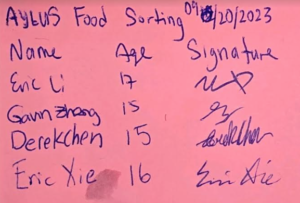 AyLUS Food Sorting 09/20/2023
Name Age Signature
Eric Li 17
Gavin Zhang 15
Derek Chen 15 Derek Chen
Eric Xie 16 Eric Xie